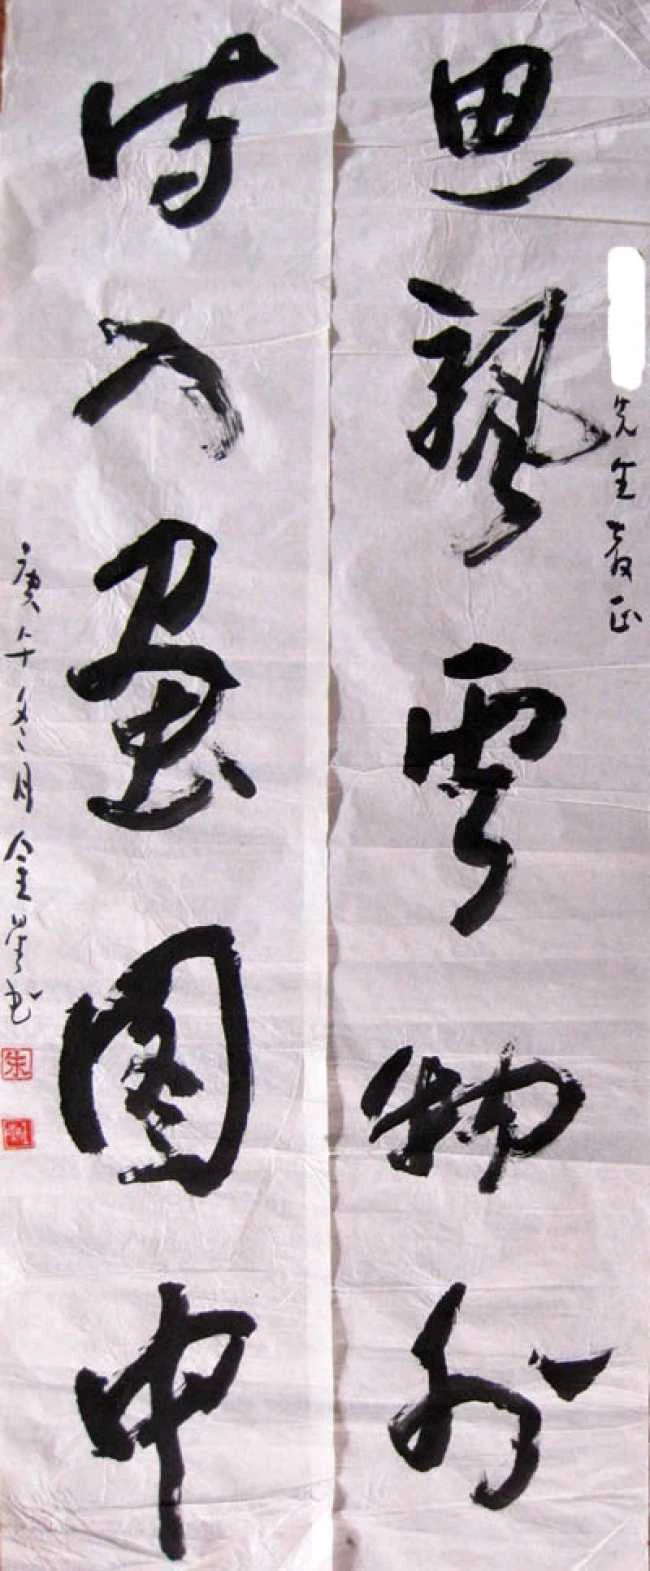 思飄雲物外
先生教正
诗入畫图中
庚午冬月金书
朱